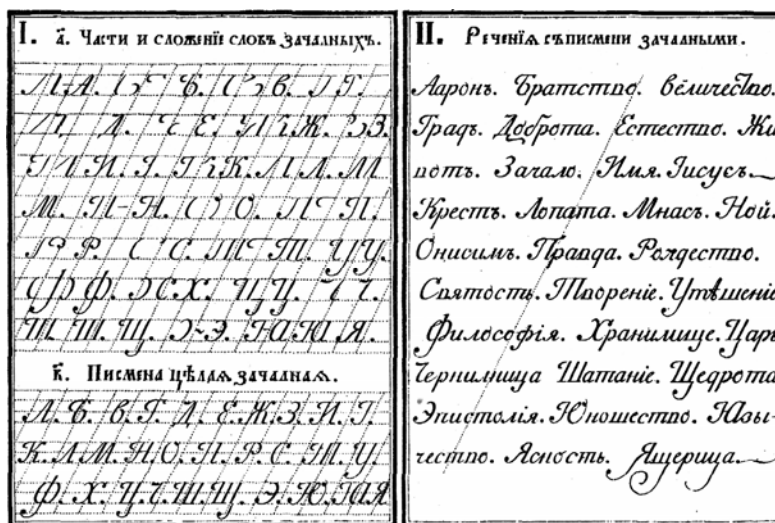 I. а҃. Части и сложенїе словъ зачалныхъ.
А. Б. В. Г.
Д. Е. Ж. З.
И. І. К. Л. М
М. Н. О. П.
Р. С. Т. У.
Ф. Х. Ц. Ч.
Ш. Щ. Э. Ю. Я.
в҃. Писмена цѣлая зачалная.
А. Б. В. Г. Д. Е. Ж. З. И. І.
К. Л. М. Н. О. П. Р. С. Т. У.
Ф. Х. Ц. Ч. Ш. Щ. Э. Ю. Ꙗ Я
II. Реченїя съписмени зачалными.
Ааронъ. Братство. Величество.
Градъ. Доброта. Естество. Жи
вотъ. Зачало. Имя. Іисусъ.
Крестъ. Лопата. Мнасъ. Ной.
Онисимъ. Правда. Рождество.
Святость. Твореніе. Утѣшеніе
Философія. Хранилище. Царь
Чернилница Шатаніе. Щедрота
Эпистолія. Юношество. Ꙗзы-
чество. Ясность. Ящерица.